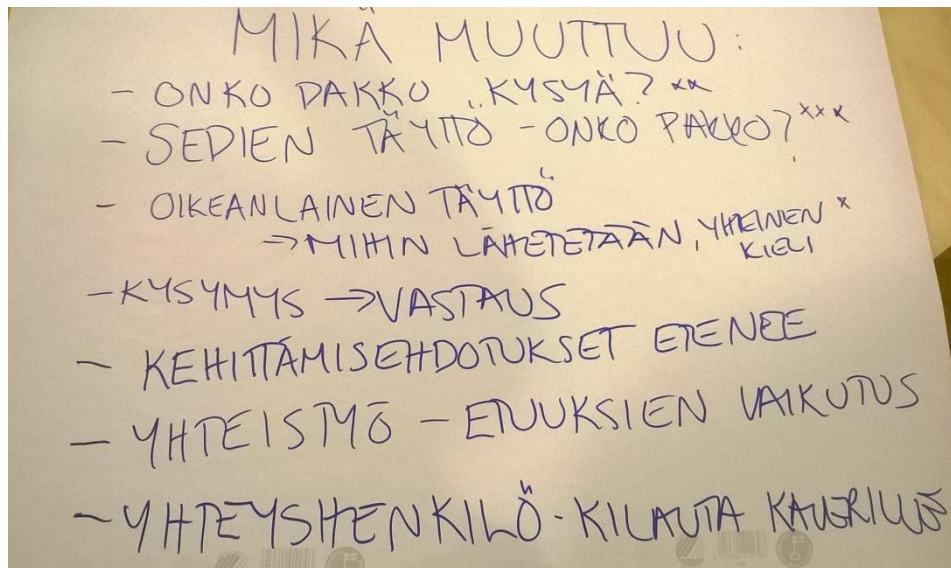 MIKÄ MUUTTUU:
- ONKO PAKKO "KYSYÄ? xx
- SEDIEN TÄYTTÖ - ONKO PAKKO? xxx
- OIKEANLAINEN TÄYTTÖ
→ MIHIN LÄHETETÄÄN, YHTEINEN x
KIELI
- KYSYMYS → VASTAUS
- KEHITTÄMISEHDOTUKSET ETENEE
- YHTEISTYÖ - ETUUKSIEN VAIKUTUS
- YHTEYSHENKILÖ - KILAUTA KAVERILLE